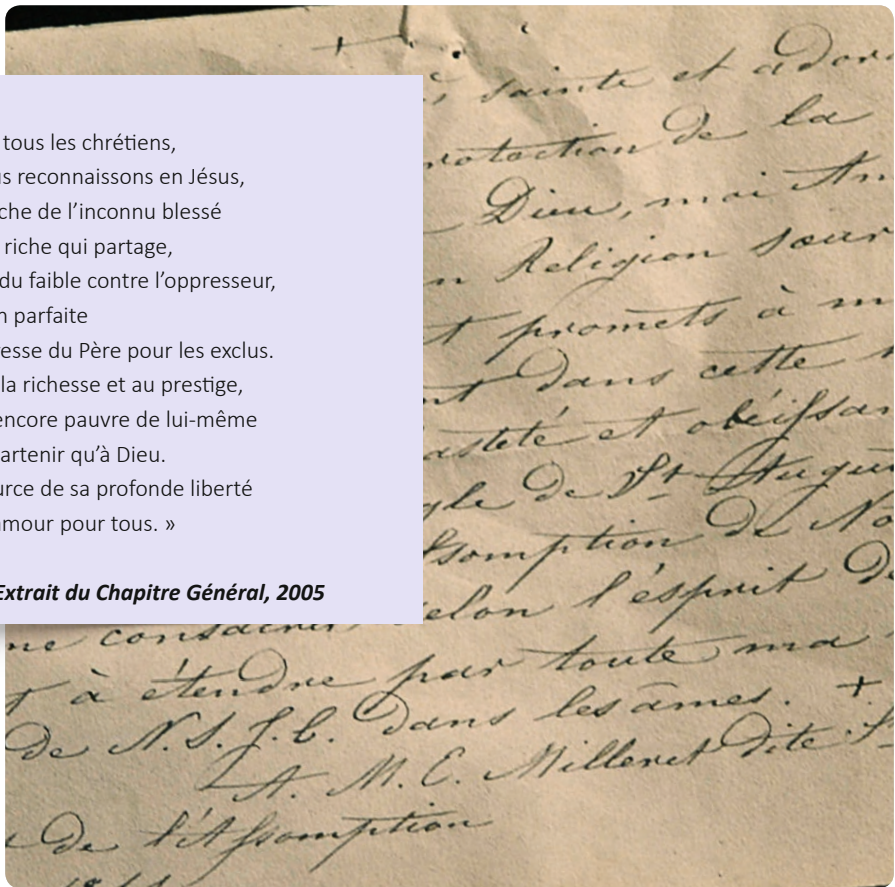 tous les chrétiens,
us reconnaissons en Jésus,
che de l'inconnu blessé
riche qui partage,
du faible contre l'oppresseur,
n parfaite
esse du Père pour les exclus.
la richesse et au prestige,
encore pauvre de lui-même
artenir qu'à Dieu.
urce de sa profonde liberté
amour pour tous. »
Extrait du Chapitre Général, 2005
sainte et ador
rotection de la
Dieu, moi An
n Religion sœur
t promets à m
nt dans cette
asteté et obéissan
gle de St Augus
ssomption de No
me consacrer selon l'esprit de
t à étendre par toute ma
de N. S. J. C. dans les âmes. +
A. M. E. Milleret dite S
de l'Assomption